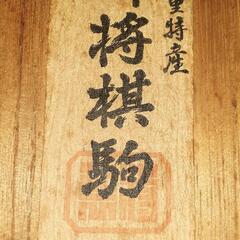 里特産
将棋駒